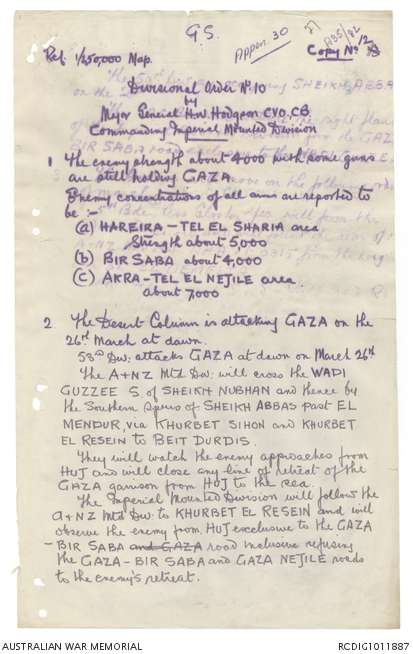 G.S.
Appen. 30
A35/82
Copy No 12
Ref: 1/250,000 Map.
Divisional Order No. 10
by
Major General H.W. Hodgson CVO, CB
Commanding Imperial Mounted Division
1. The enemy strength about 4000 with some guns
are still holding GAZA.
Enemy concentrations of all arms are reported to
be :-
(a) HAREIRA - TEL EL SHARIA area
Strength about 5,000
(b) BIR SABA about 4,000
(c) AKRA - TEL EL NEJILE area
about 7,000
2. The Desert Column is attacking GAZA on the
26th March at dawn.
53rd Div: attacks GAZA at dawn on March 26th
The A+NZ Mtd Div: will cross the WADI
GUZZEE S. of SHEIKH NUBHAN and thence by
the Southern Spurs of SHEIKH ABBAS past EL
MENDUR, via KHURBET SIHON and KHURBET
EL RESEIN to BEIT DURDIS.
They will watch the enemy approaches from
HUJ and will close any line of retreat of the
GAZA garrison from HUJ to the sea.
The Imperial Mounted Division will follow the
A+NZ Mtd Div: to KHURBET EL RESEIN and will
observe the enemy from HUJ exclusive to the GAZA
- BIR SABA and GAZA road inclusive refusing
the GAZA - BIR SABA and GAZA NEJILE roads
to the enemy's retreat.
AUSTRALIAN WAR MEMORIAL
RCDIG1011887